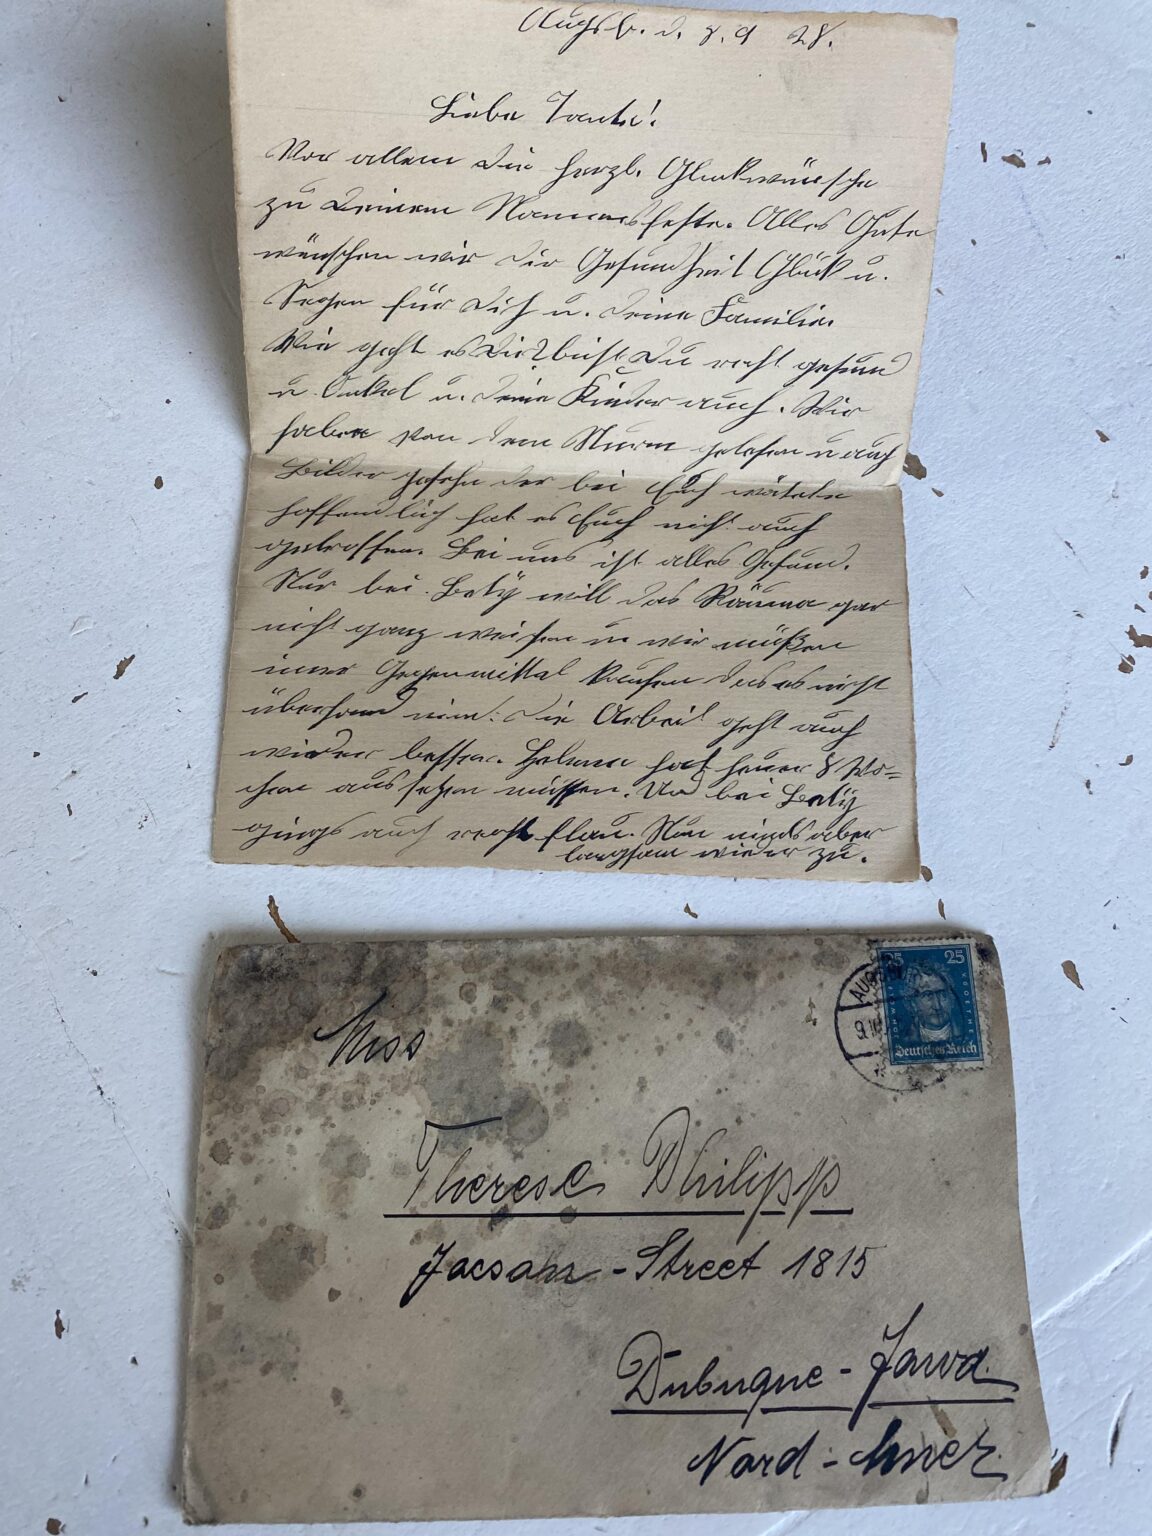 Augsb. d. 8. 9 28.
Liebe Tante!
Vor allem die herzl. Glückwünsche
zu Deinem Namensfeste. Alles Gute
wünschen wir dir Gesundheit Glück u.
Segen für Dich u. Deine Familie.
Wie geht es Dir? bist Du recht gesund
u. Onkel u. Deine Kinder auch. Wir
haben von dem Sturm gelesen u auch
Bilder gesehn der bei Euch wütete
hoffendlich hat es Euch nicht auch
getroffen. Bei uns ist alles Gesund.
Nur bei Bety will das Räuma gar
nicht ganz weichen u wir müßen
imer Gegenmittel kaufen das es nicht
überhand nimt. Die Arbeit geht auch
wieder besser. Helene hat heuer 8 Wo=
chen aussetzen müssen. Und bei Bety
gings auch recht flau. Nun aber
langsam wieder zu.
25 25
Deutsches Reich
Miss
Therese Philipp
Jacson-Street 1815
Dubuque-Jowa
Nord-Amer.